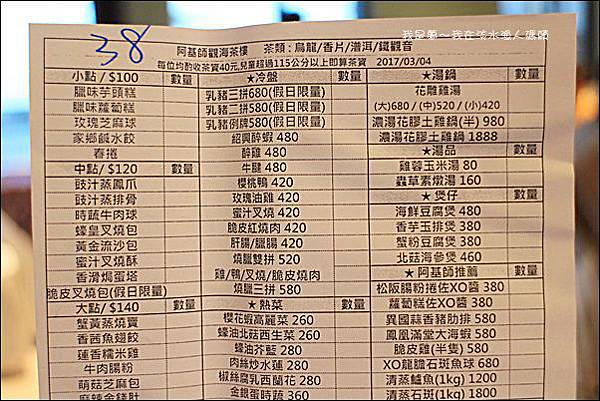 我是東~我在淡水漁人碼頭
38
阿基師觀海茶樓 茶類:烏龍/香片/潽洱/鐵觀音
每位均酌收茶資40元,兒童超過115公分以上即算茶資 2017/03/04
小點/ $100 數量
臘味芋頭糕
臘味蘿蔔糕
玫瑰芝麻球
家鄉鹹水餃
春捲
中點/ $120 數量
豉汁蒸鳳爪
豉汁蒸排骨
時蔬牛肉球
蠔皇叉燒包
黃金流沙包
蜜汁叉燒酥
香滑焗蛋塔
脆皮叉燒包(假日限量)
大點/ $140 數量
蟹黃蒸燒賣
香茜魚翅餃
蓮香糯米雞
牛肉腸粉
萌菇芝麻包
麻辣金錢肚
★冷盤 數量
乳豬三拼680(假日限量)
乳豬二拼580(假日限量)
乳豬例牌580(假日限量)
紹興醉蝦 480
醉雞 480
牛腱 480
櫻桃鴨 420
玫瑰油雞 420
蜜汁叉燒 420
脆皮紅燒肉 420
肝腸/臘腸 420
燒臘雙拼 520
雞/鴨/叉燒/脆皮燒肉
燒臘三拼 580
★熱菜 數量
櫻花蝦高麗菜 260
蠔油北菇西生菜 260
蠔油芥藍 280
肉絲炒水蓮 280
椒絲腐乳西蘭花 280
金銀蛋時蔬 360
★湯鍋 數量
花雕雞湯
(大)680 / (中)520 / (小)420
濃湯花膠土雞鍋(半) 980
濃湯花膠土雞鍋 1888
★湯品 數量
雞蓉玉米湯 80
蟲草素燉湯 160
★煲仔 數量
海鮮豆腐煲 480
香芋玉排煲 380
蟹粉豆腐煲 380
北菇海參煲 460
★阿基師推薦 數量
松阪腸粉捲佐XO醬 380
蘿蔔糕佐XO醬 380
異國蒜香豬肋排 580
鳳凰滿堂大海蝦 580
脆皮雞(半隻) 580
XO龍膽石斑魚球 680
清蒸鱸魚(1kg) 1200
清蒸石斑(1kg) 1800